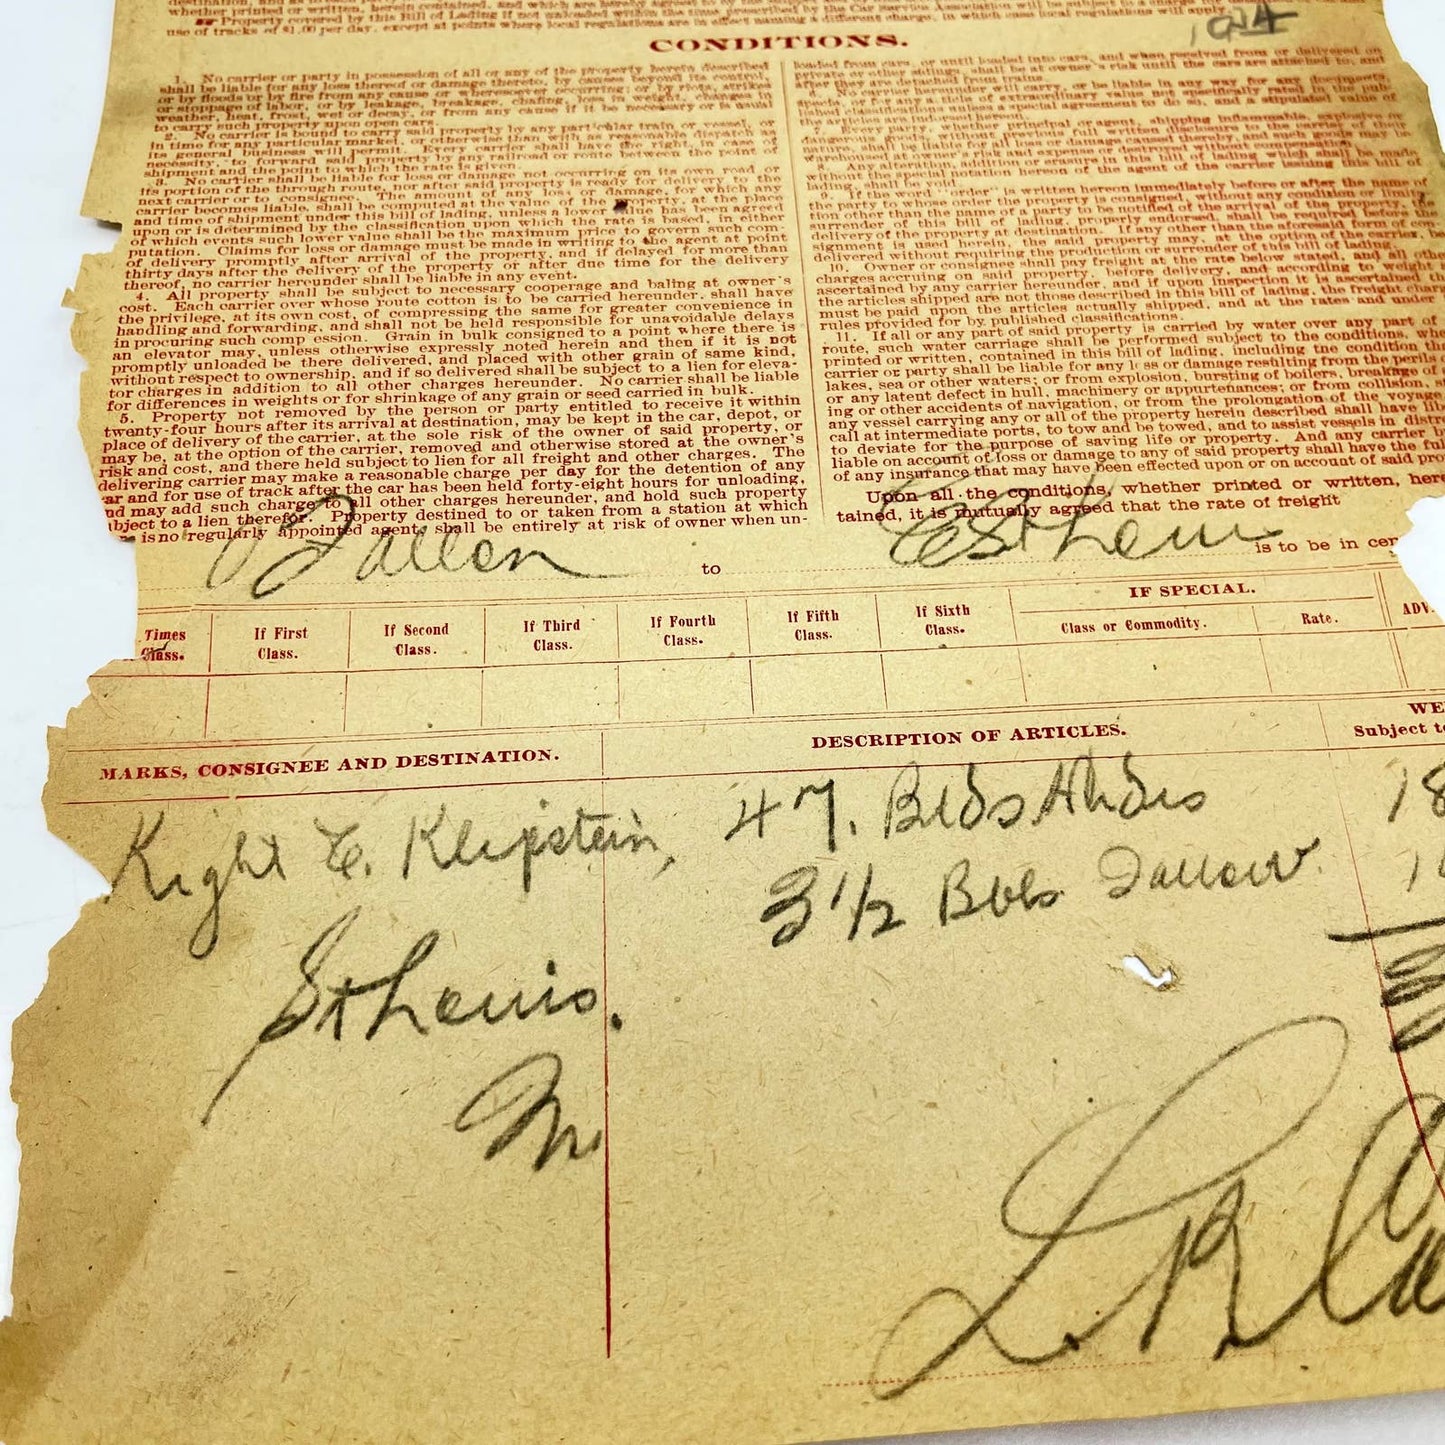 whether printed or written herein contained, and which are hereby agreed to by the
Property covered by this Bill of Lading if not unloaded within the time prescribed by the Car Service Association will be subject to a charge for
use of tracks of $1.00 per day, except at points where local regulations are in effect naming a different charge, in which case local regulations will apply.
CONDITIONS.
1. No carrier or party in possession of all or any of the property herein described
shall be liable for any loss thereof or damage thereto, by causes beyond its control,
or by floods or by fire from any cause or wheresoever occurring; or by riots, strikes
or stoppage of labor, or by leakage, breakage, chafing, loss in weight, changes in
weather, heat, frost, wet or decay, or from any cause if it be necessary or is usual
to carry such property upon open cars
2. No carrier is bound to carry said property by any particular train or vessel, or
in time for any particular market, or otherwise than with as reasonable dispatch as
its general business will permit. Every carrier shall have the right, in case of
necessity, to forward said property by any railroad or route between the point of
shipment and the point to which the rate is given.
3. No carrier shall be liable for loss or damage not occurring on its own road or
its portion of the through route, nor after said property is ready for delivery to the
next carrier or to consignee. The amount of any loss or damage, for which any
carrier becomes liable, shall be computed at the value of the property, at the place
and time of shipment under this bill of lading, unless a lower value has been agreed
upon or is determined by the classification upon which the rate is based, in either
of which events such lower value shall be the maximum price to govern such com-
putation. Claims for loss or damage must be made in writing to the agent at point
of delivery promptly after arrival of the property, and if delayed for more than
thirty days after the delivery of the property or after due time for the delivery
thereof, no carrier hereunder shall be liable in any event.
4. All property shall be subject to necessary cooperage and baling at owner's
cost. Each carrier over whose route cotton is to be carried hereunder, shall have
the privilege, at its own cost, of compressing the same for greater convenience in
handling and forwarding, and shall not be held responsible for unavoidable delays
in procuring such comp ession. Grain in bulk consigned to a point where there is
an elevator may, unless otherwise expressly noted herein and then if it is not
promptly unloaded be there delivered, and placed with other grain of same kind,
without respect to ownership, and if so delivered shall be subject to a lien for eleva-
tor charges in addition to all other charges hereunder. No carrier shall be liable
for differences in weights or for shrinkage of any grain or seed carried in bulk.
5. Property not removed by the person or party entitled to receive it within
twenty-four hours after its arrival at destination, may be kept in the car, depot, or
place of delivery of the carrier, at the sole risk of the owner of said property, or
may be, at the option of the carrier, removed and otherwise stored at the owner's
risk and cost, and there held subject to lien for all freight and other charges. The
delivering carrier may make a reasonable charge per day for the detention of any
car and for use of track after the car has been held forty-eight hours for unloading,
nd may add such charge to all other charges hereunder, and hold such property
bject to a lien therefor. Property destined to or taken from a station at which
is no regularly appointed agent, shall be entirely at risk of owner when un-
loaded from cars, or until loaded into cars, and when received from or delivered on
private or other sidings, shall be at owner's risk until the cars are attached to, and
after they are detached from trains.
6. No carrier hereunder will carry, or be liable in any way for any documents,
specie, or for any article of extraordinary value not specifically rated in the pub-
lished classification unless a special agreement to do so, and a stipulated value of
the articles are indorsed hereon.
7. Every party, whether principal or agent, shipping inflammable, explosive or
dangerous goods, without previous full written disclosure to the carrier of their
nature, shall be liable for all loss or damage caused thereby, and such goods may be
warehoused at owner's risk and expense or destroyed without compensation.
8. Any alteration, addition or erasure in this bill of lading which shall be made
without the special notation hereon of the agent of the carrier issuing this bill of
lading, shall be void
9. If the word "order" is written hereon immediately before or after the name of
the party to whose order the property is consigned, without any condition or limita-
tion other than the name of a party to be notified of the arrival of the property, the
surrender of this bill of lading, properly endorsed, shall be required before the
delivery of the property at destination. If any other than the aforesaid form of con-
signment is used herein, the said property may, at the option of the carrier, be
delivered without requiring the production or surrender of this bill of lading.
10. Owner or consignee shall pay freight at the rate below stated, and all othe
charges accruing on said property, before delivery, and according to weight
ascertained by any carrier hereunder, and if upon inspection it is ascertained th
the articles shipped are not those described in this bill of lading, the freight charg
must be paid upon the articles actually shipped, and at the rates and under
rules provided for by published classifications.
11. If all or any part of said property is carried by water over any part of
route, such water carriage shall be performed subject to the conditions, whe
printed or written, contained in this bill of lading, including the condition tha
carrier or party shall be liable for any l ss or damage resulting from the perils o
lakes, sea or other waters; or from explosion, bursting of boilers, breakage of
or any latent defect in hull, machinery or appurtenances; or from collision, s
ing or other accidents of navigation, or from the prolongation of the voyage
any vessel carrying any or all of the property herein described shall have lib
call at intermediate ports, to tow and be towed, and to assist vessels in distre
to deviate for the purpose of saving life or property. And any carrier b
liable on account of loss or damage to any of said property shall have the ful
of any insurance that may have been effected upon or on account of said pro
Upon all the conditions, whether printed or written, here
tained, it is mutually agreed that the rate of freight
to E St Loui is to be in cen
Times Class. If First Class. If Second Class. If Third Class. If Fourth Class. If Fifth Class. If Sixth Class. IF SPECIAL. Class or Commodity. Rate. ADV.
MARKS, CONSIGNEE AND DESTINATION. DESCRIPTION OF ARTICLES. WE
Subject to
Klipstein, 47. Bids Hides 18
3 1/2 Bbls Tallow.
St Louis.
Mo.
L R